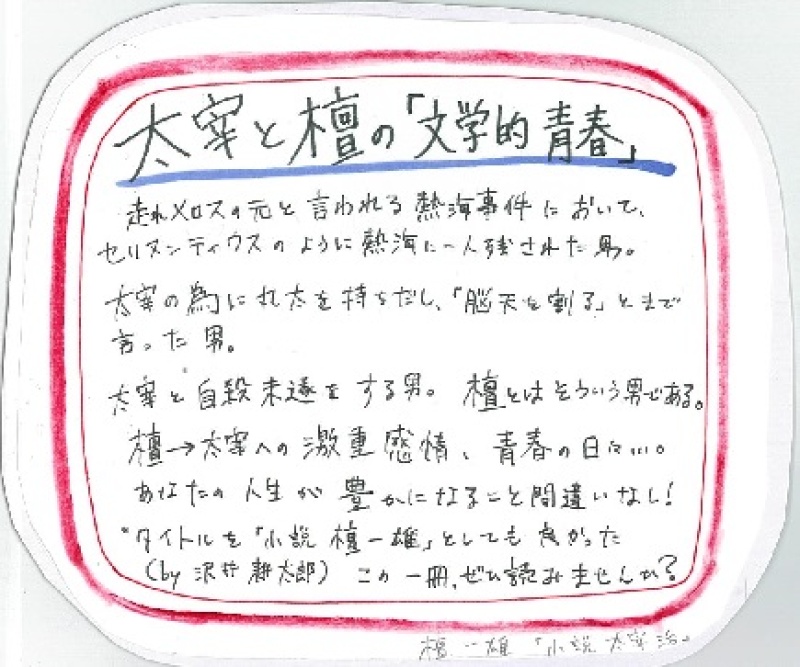 太宰と檀の「文学的青春」
走れメロスの元と言われる熱海事件において、
セリヌンティウスのように熱海に一人残された男。
太宰の為に丸太を持ちだし、「脳天を割る」とまで
言った男。
太宰と自殺未遂をする男。檀とはそういう男である。
檀→太宰への激重感情、青春の日々…。
あなたの人生が豊かになること間違いなし!
"タイトルを「小説 檀一雄」としても良かった
(by 沢井耕太郎) この一冊、ぜひ読みませんか?
檀一雄「小説 太宰治」